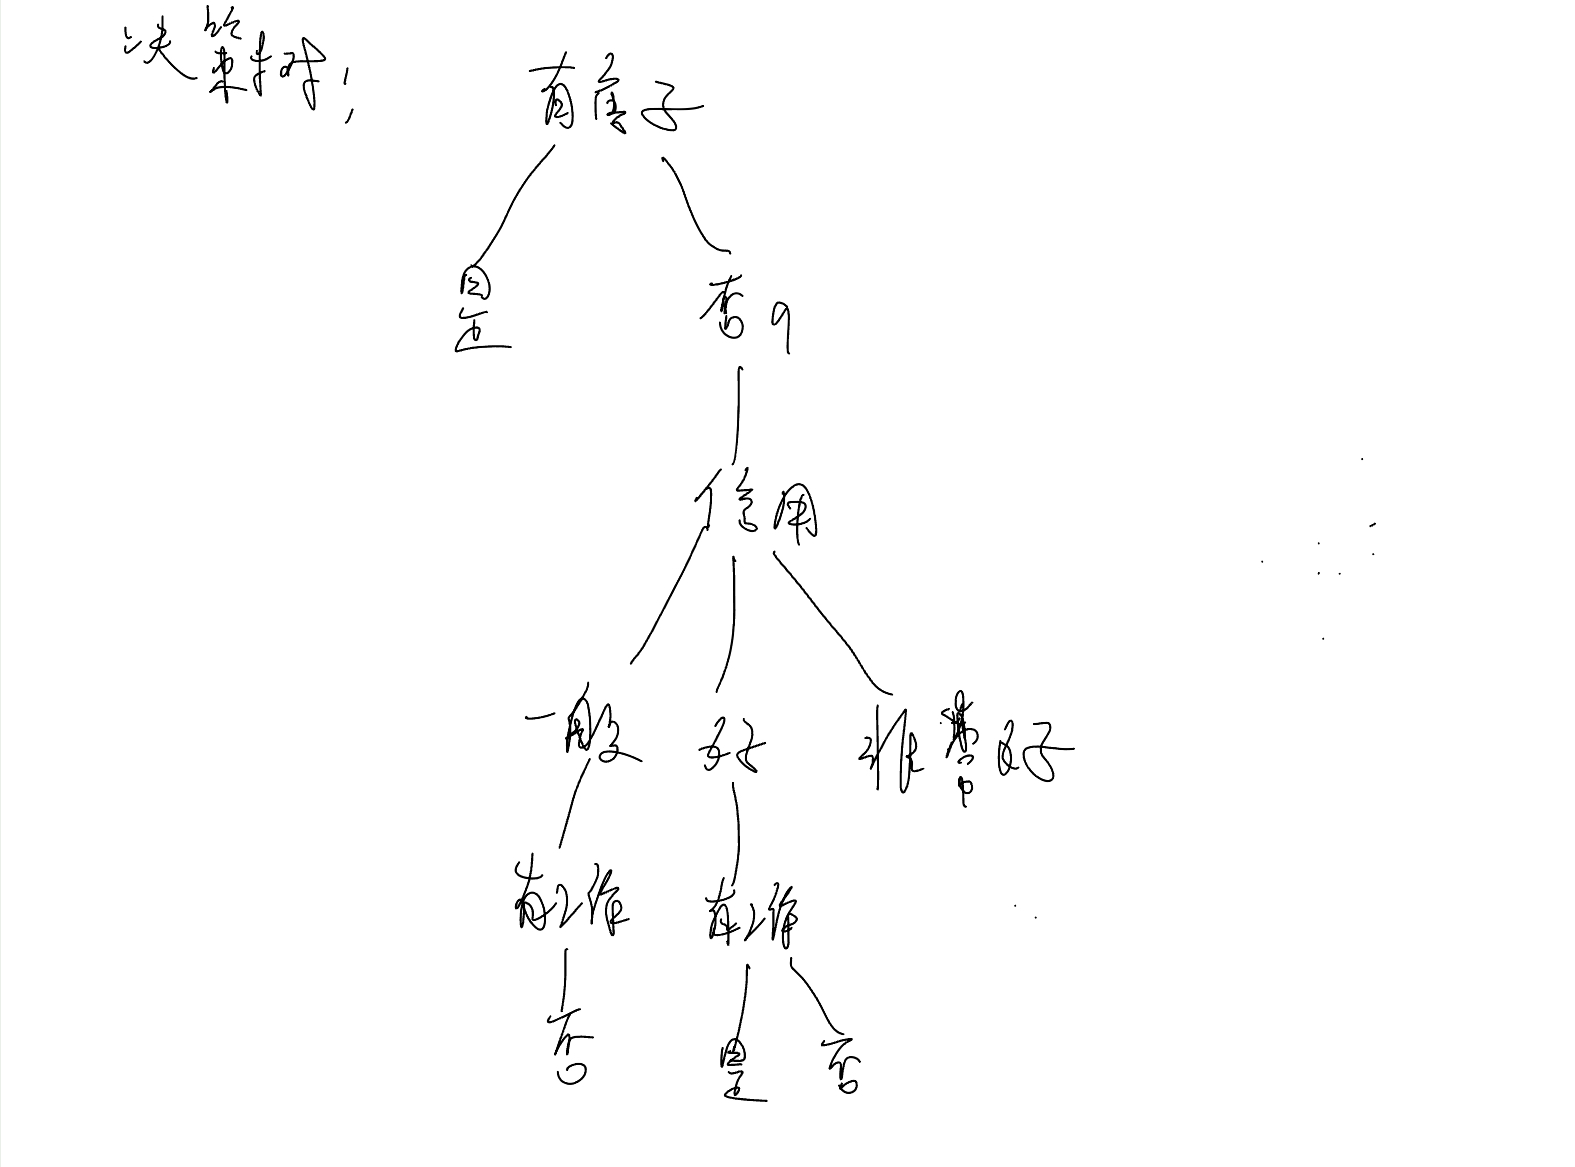 决策树：
有房子
是
否 9
信用
一般 好 非常好
有工作 有工作
否 是 否